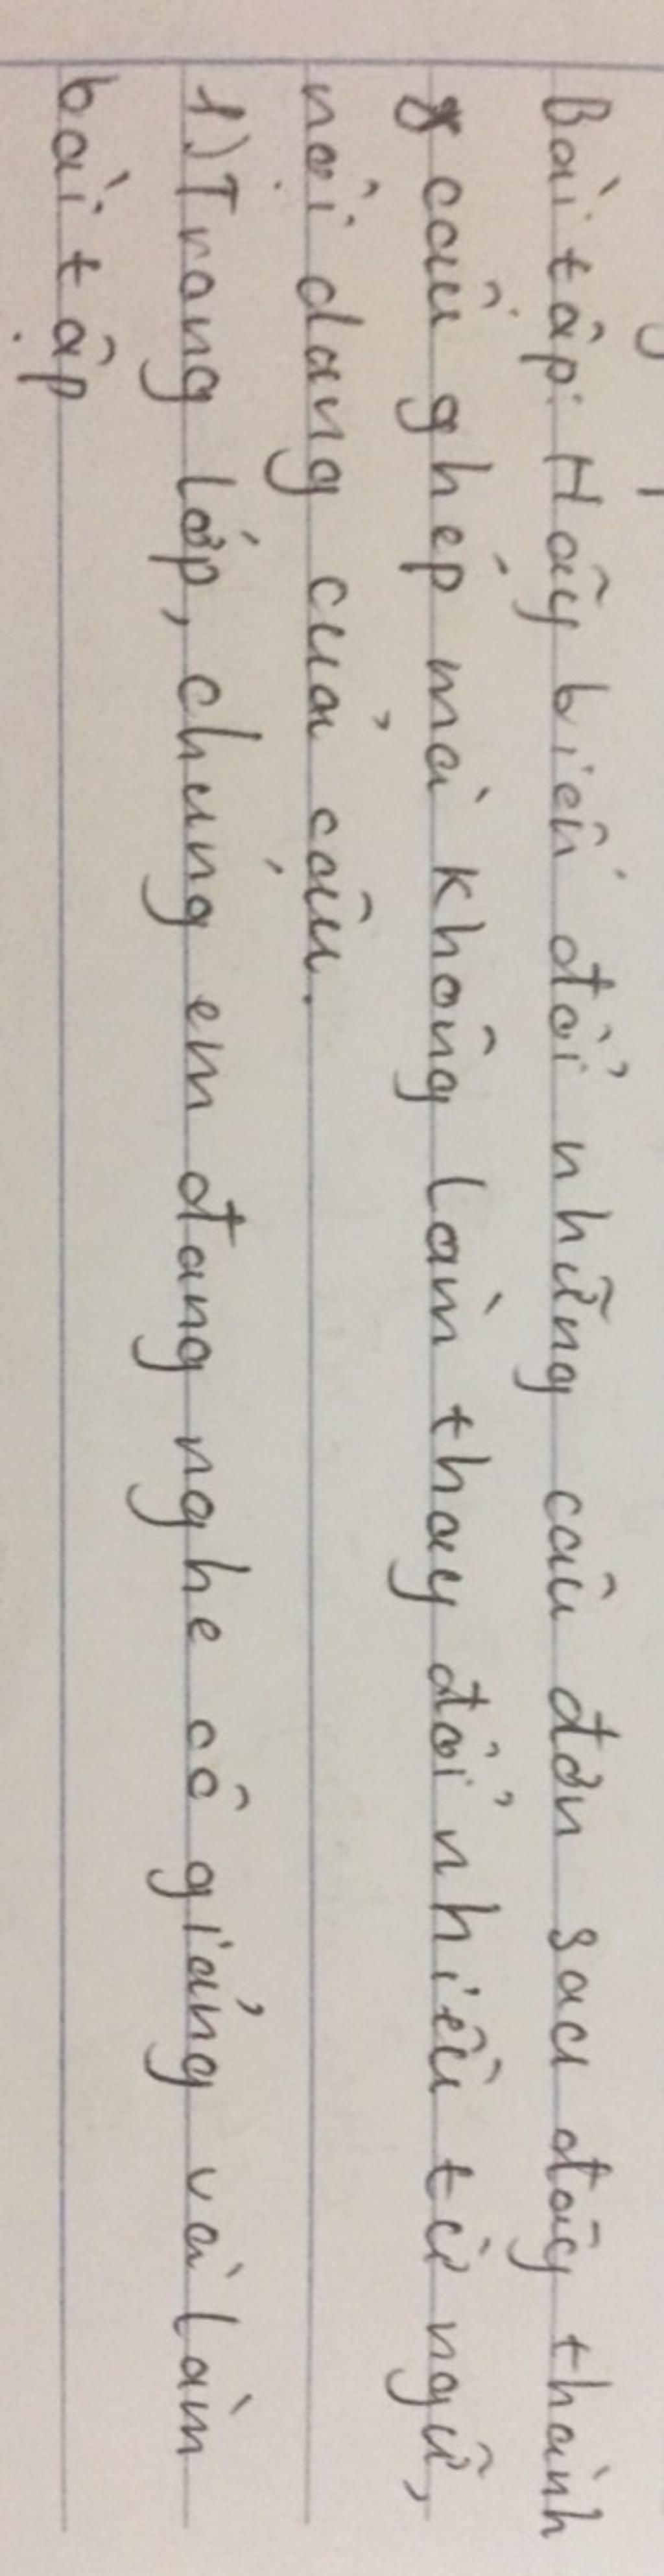 Bài tập: Hãy biến đổi những câu đơn sau đây thành
câu ghép mà không làm thay đổi nhiều từ ngữ,
nội dang của câu.
1) Trong lớp, chúng em đang nghe cô giảng và làm
bài tập